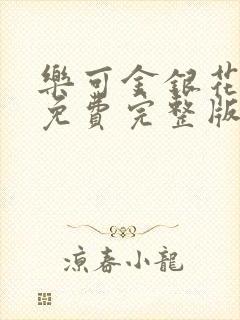 樂可金銀花
免費完整版
涼春小龍